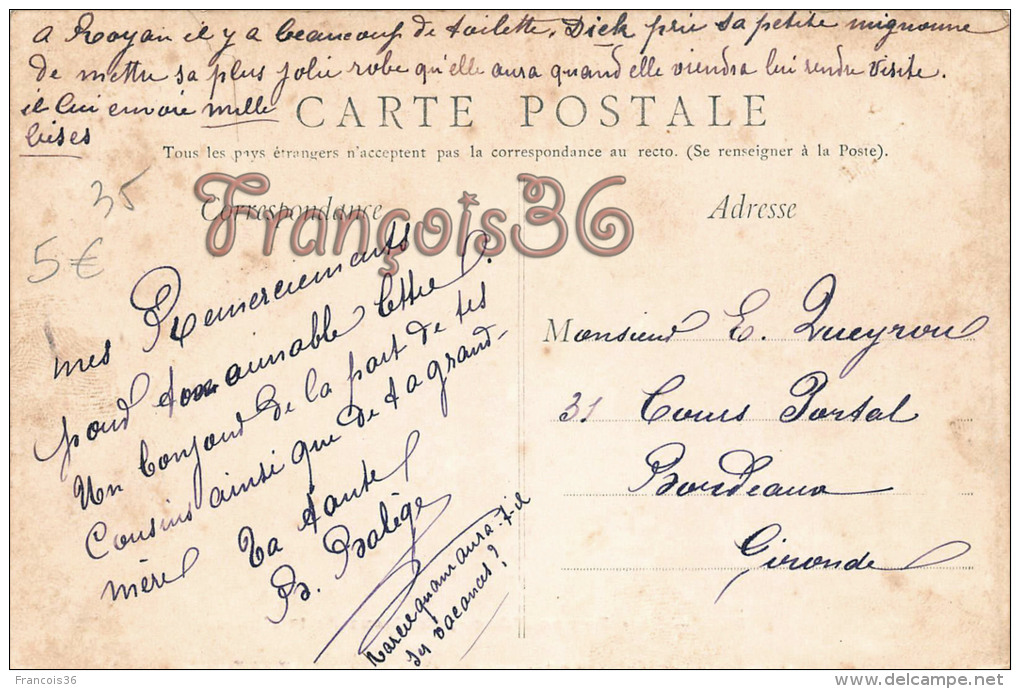 a Royan il y a beaucoup de toilette. Dick prie sa petite mignonne
de mettre sa plus jolie robe qu'elle aura quand elle viendra lui rendre visite.
il lui envoie mille
bises
CARTE POSTALE
Tous les pays étrangers n'acceptent pas la correspondance au recto. (Se renseigner à la Poste).
35
5€
Correspondance
François36
Adresse
mes Remerciements
pour ton aimable lettre.
Un bonjour de la part de tes
Cousins ainsi que de ta grand-
mère
Ta tante
B. Balège
quand aura-t-il
ses vacances?
Monsieur E. Queyrou
31 Cours Portal
Bordeaux
Gironde
Francois36
delcampe.net